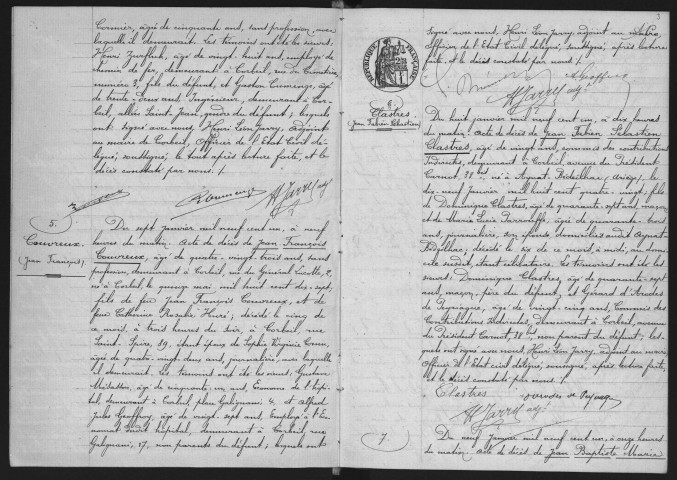 Cosnier, âgée de cinquante ans, sans profession, avec
laquelle il demeurait. Les témoins ont été les sieurs,
Henri Zurfluh, âgé de vingt huit ans, employé de
chemin de fer, demeurant à Corbeil, rue du Cimetière,
numéro 3, fils du défunt, et Gaston Cumenge, âgé
de trente deux ans, Ingénieur, demeurant à Cor-
beil, allée Saint Jean, gendre du défunt; lesquels
ont signé avec nous, Henri Léon Jarry, adjoint
au maire de Corbeil, Officier de l'Etat Civil dé-
légué, soussigné, le tout après lecture faite, et le
décès constaté par nous.
H Jarry adj
5.
Couvreux
(Jean François).
Du sept janvier mil neuf cent un, à neuf
heures du matin. Acte de décès de Jean François
Couvreux, âgé de quatre-vingt-trois ans, sans
profession, demeurant à Corbeil, rue du Général Lucotte, 2,
né à Corbeil, le quinze mai mil huit cent dix-sept;
fils de feu Jean François Couvreux, et de
feue Catherine Rosalie Heuré; décédé le cinq de
ce mois, à trois heures du soir, à Corbeil rue
Saint Spire, 59, étant époux de Sophie Virginie
âgée de quatre-vingt deux ans, journalière, avec laquelle
il demeurait. Les témoins ont été les sieurs, Gustave
âgé de cinquante un ans, Econome de l'hôpi-
tal, demeurant à Corbeil place Galignani 4, et Alfred
Jules Geoffroy, âgé de vingt sept ans, Employé à l'E-
conomat dudit hôpital, demeurant à Corbeil, rue
Galignani, 17, non parents du défunt; lesquels ont
3
signé avec nous, Henri Léon Jarry, adjoint au Maire,
Officier de l'Etat Civil délégué, soussigné, après lecture
faite, et le décès constaté par nous.
Geoffroy
H Jarry adj
RÉPUBLIQUE FRANÇAISE
6.
Clastres
(Jean Fabien Sébastien)
Du huit janvier mil neuf cent un, à dix heures
du matin. Acte de décès de Jean Fabien Sébastien
Clastres, âgé de vingt ans, commis des contributions
Indirectes, demeurant à Corbeil, avenue du Président
Carnot, 38 bis, né à Auzat (Ariège), le
dix neuf janvier mil huit cent quatre-vingt; fils
de Dominique Clastres, âgé de quarante sept ans, maçon,
et de Marie Lucie âgée de quarante-trois
ans, journalière, son épouse domiciliés audit Auzat
décédé le six de ce mois, à midi, au domi-
cile susdit, étant célibataire. Les témoins ont été les
sieurs, Dominique Clastres, âgé de quarante-sept
ans, maçon, père du défunt, et Gérard d'Arodes
de Peyriague, âgé de vingt-cinq ans, Commis des
Contributions Indirectes, demeurant à Corbeil, avenue
du Président Carnot, 38 bis, non parent du défunt; les-
quels ont signé avec nous, Henri Léon Jarry, adjoint au maire
Officier de l'Etat civil délégué, soussigné, après lecture faite,
et le décès constaté par nous.
Clastres
H Jarry adj
7
Du neuf janvier mil neuf cent un, à onze heures
du matin. Acte de décès de Jean Baptiste Marie